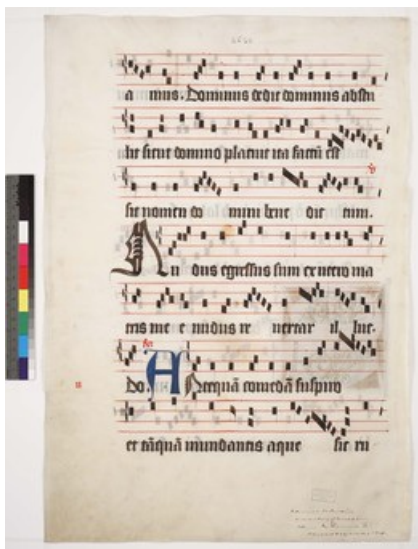 a mus. Dominus dedit dominus abstu
lit sicut domino placuit ita factū est
sit nomen do mini bene dic tum.
Nu dus egressus sum ex utero ma
tris me e nudus re vertar il luc.
Do. Antequā comedā suspiro
et tāquā inundantis aque sic ru